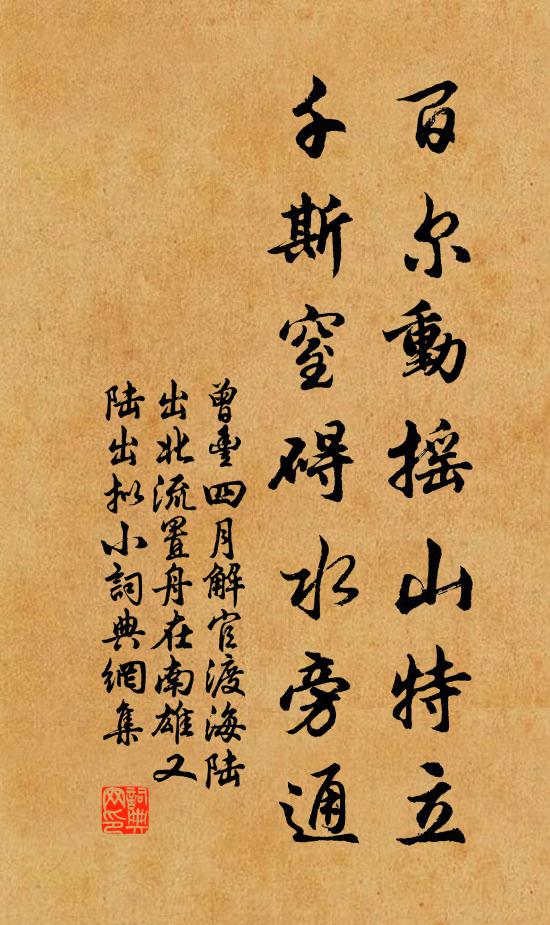 百尔動摇山特立
千斯窒碍水旁通
曾豊四月解官渡海陆
出北流置舟在南雄又
陆出拟小詞典網集
詞典网印